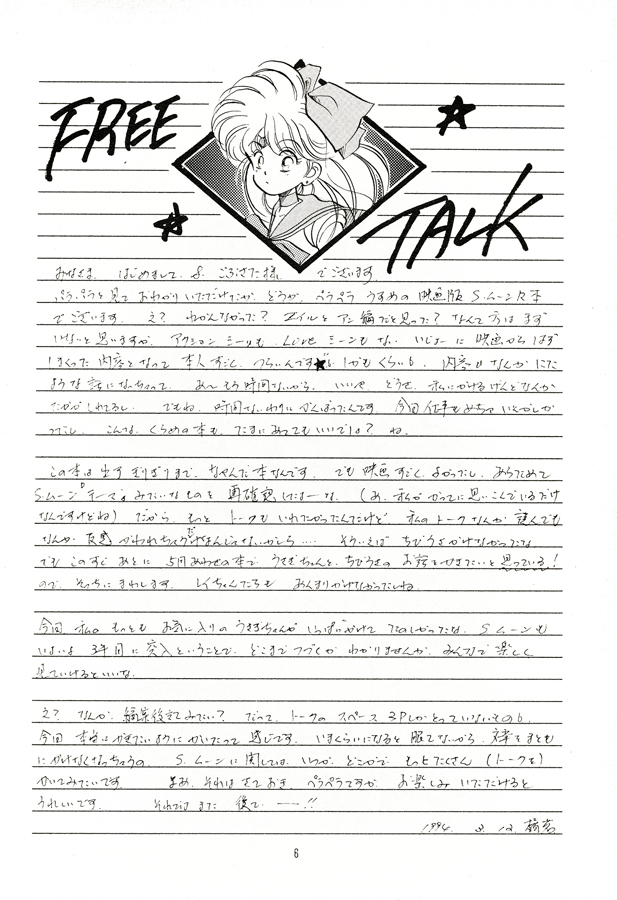 FREE
TALK
みなさま はじめまして、& ごぶさた様 でございます
パラパラと見ておわかりいただけたか どうか、ペラペラ うすめの 映画版 S.ムーン 本
でございます。え？ わかんなかった？ エイルとアン編だと思った？ なんて方は まず
いないと思いますが、アクションシーンも Loveシーンもない、 に映画から はず
しまくった 内容となって 本人すごし、つらいんです★ しかもくらいし、内容もなんか にた
ような話になっちゃって、あ〜 もう時間ないから、いいや どうせ、私にかけるもんなんか
たかがしれてるし、でもね、時間ないわりに がんばったんです 今回仕事もめちゃ いそがしか
ったし、こんな、くらめの本も、たまにあってもいいでしょ？ ね。
この本は出すぎりぎりまで、なやんだ本なんです。でも 映画 すごく よかったし、あらためて
S.ムーン『テーマ』みたいなものを 再確認したよーな、（あ、私がかってに思いこんでいるだけ
なんですけどね）だから、もっと トークも いれたかったんだけど 私のトークなんか 読んでも
なんか 反感 かわれちゃうだけなんじゃないかしら…‥ そういえば ちびうさかけなかったな
でも このすぐあとに 5月あわせの本で、うさぎちゃんと、ちびうさの お話をかきたいと思っている！
ので、そっちにまわします。レイちゃんたちも あんまりかけなかったしね。
今回、私の もっとも お気に入りの うさぎちゃんが いっぱいかけて たのしかったな、S.ムーンも
いよいよ 3年目に突入ということで、どこまでつづくか わかりませんが、みんなで楽しく
見ていけるといいな。
え？ なんか、編集後記みたい？ だって、トークの スペース 3Pしかとっていないもの
今回 本当に かきたいようにかいたって 感じです。いまくらいになると 眠くてなんか、文章をまとも
にかけなくなっちゃうの S.ムーンに関しては、いつか、どこかで もっとたくさん（トークを）
かいてみたいです まあ、それは さておき ペラペラですが、お楽しみいただけると
うれしいです。 それでは また 後で ー！！
1994. 3. 12.
6